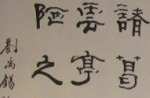 諸葛
雲亭
陋之
劉禹錫